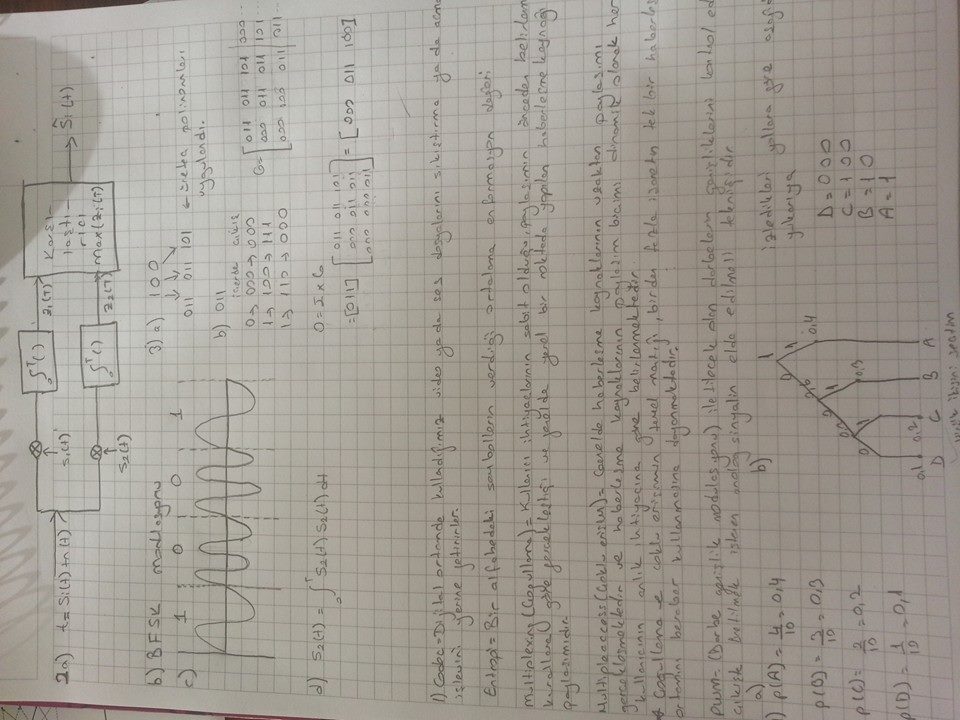 2a) t = Si(t) + n(t)
S1(t)
S2(t)
∫0^T ( )
∫0^T ( )
z1(T)
z2(T)
Karşı-
laştı-
rıcı
max(zi(T))
Ŝi(t)
b) BFSK modülasyonu
c) 1 0 0 1
d) S2(t) = ∫0^T S2(t) S2(t) dt
3) a) 1 0 0
011 011 101 ← üreteç polinomları
uygulandı.
b) 011
0 → 000 → 000
1 → 100 → 111
1 → 110 → 000
G = [ 011 011 101 000
000 011 011 101
000 000 011 011
= [011] [ 011 011 101
000 011 011
000 000 011 ] = [ 000 011 100 ]
1) Codec = Dijital ortamda kulladığımız video yada ses dosyalarını sıkıştırma yada açma
işlevini yerine getirirler.
Entropi = Bir alfabedeki sembollerin verdiği ortalama enformasyon değeri
Multiplexing (Çoğullama) = Kullanıcı ihtiyacının sabit olduğu, paylaşımın önceden
gerçekleştiği ve yerelde yerel bir noktada yapılan haberleşme kaynağı
paylaşımıdır.
Multipleaccess (Çoklu erişim) = Genelde haberleşme kaynaklarının uzaktan paylaşımı
gerçekleşmektedir ve haberleşme kaynaklarının paylaşım oranı dinamik olarak her
kullanıcının anlık ihtiyacına göre belirlenmektedir.
* Çoğullama ve çoklu erişimin temel mantığı, birden fazla işaretin tek bir
ortamını beraber kullanmasına dayanmaktadır.
PWM = (Darbe genişlik modülasyonu) iletilecek olan darbelerin genişliklerini kontrol
çıkışta üretilmek istenen analog sinyalin elde edilmesi tekniğidir
a)
p(A) = 4/10 = 0,4
p(B) = 3/10 = 0,3
p(C) = 2/10 = 0,2
p(D) = 1/10 = 0,1
b)
1
0 1
0,6 0,4
0 1
0,3 0,3
0 1
0,1 0,2
D C B A
izledikleri yollara göre
yukarıya
D = 000
C = 100
B = 10
A = 1